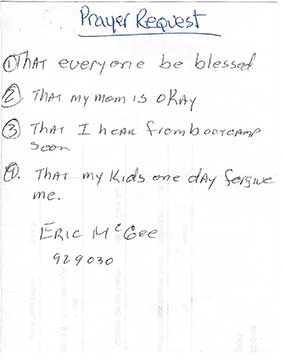 Prayer Request
① THAT everyone be blessed
②. THAT my mom is OKAY
③ THAT I hear from bootcamp
soon
④. THAT my Kids one day forgive
me.
ERIC McGee
929030